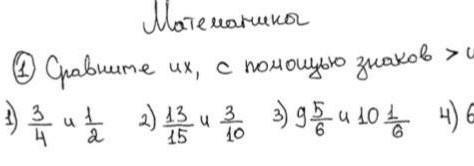 Математика
① Сравните их, с помощью знаков > и
1) 3/4 и 1/2 2) 13/15 и 3/10 3) 9 5/6 и 10 1/6 4) 6